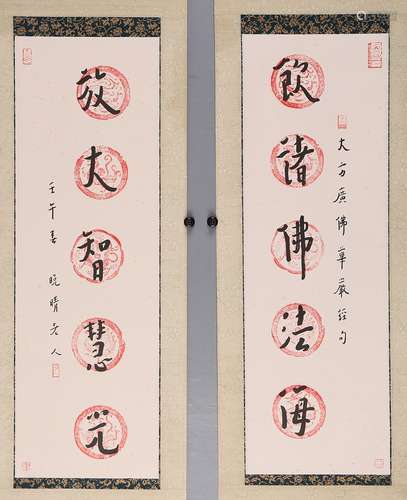 大方广佛華嚴經句
飲諸佛法海
放大智慧光
壬午春 晚晴老人